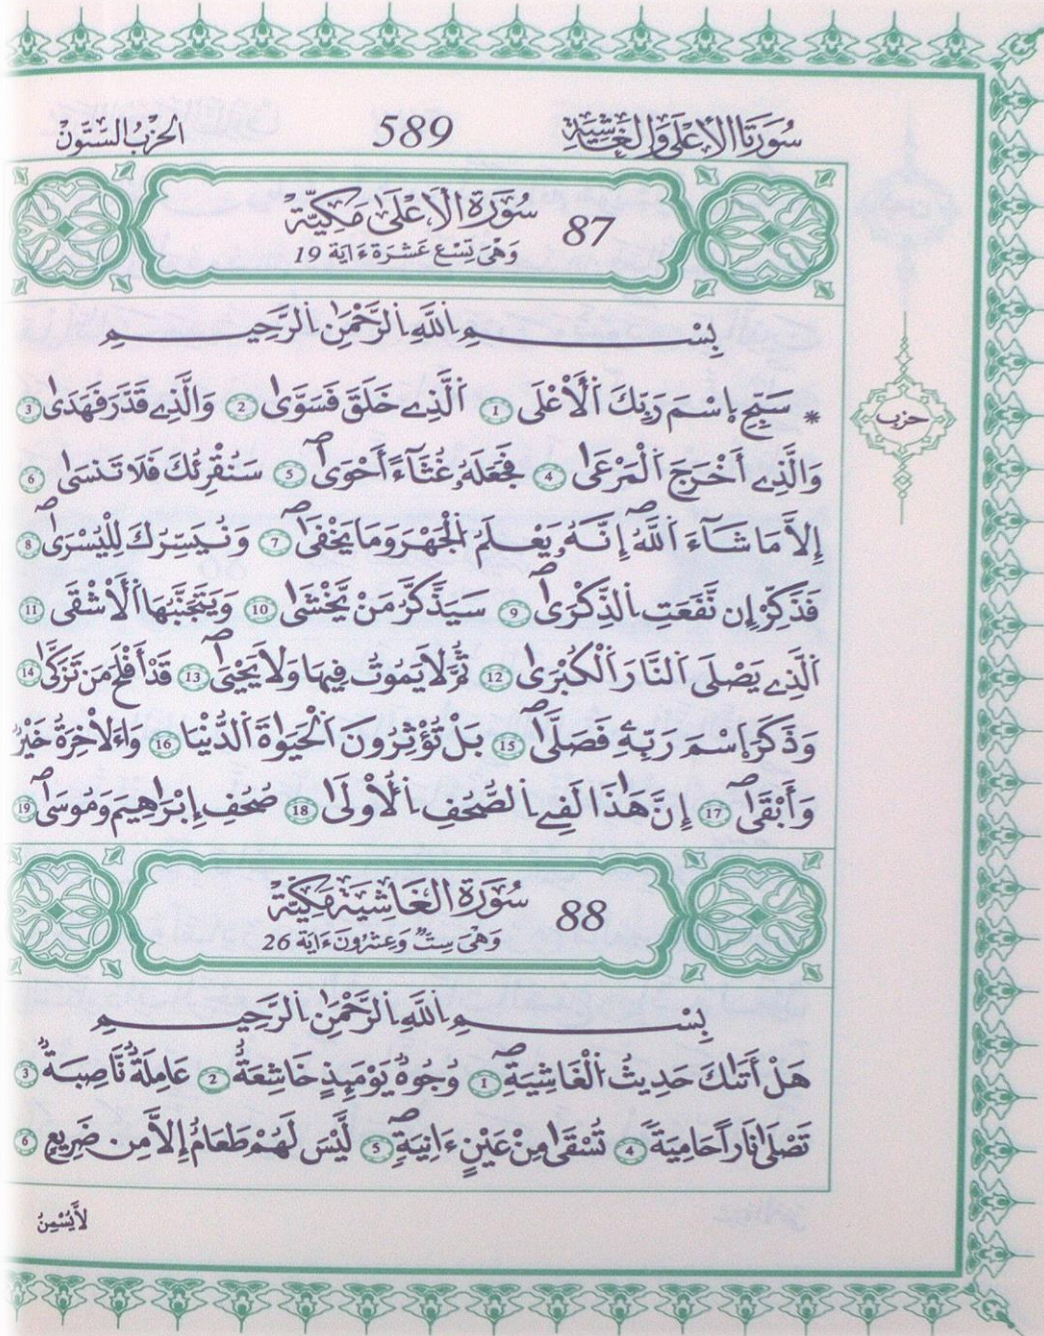 سُورَتَا الْأَعْلَى وَالْغَاشِيَةِ 589 الحِزْبُ السِّتُّونَ
87 سُورَةُ الْأَعْلَىٰ مَكِّيَّةٌ
وَهْىَ تِسْعَ عَشْرَةَ ءَايَةً 19
بِسْمِ اِ۬للَّهِ اِ۬لرَّحْمَٰنِ اِ۬لرَّحِيمِ
* سَبِّحِ اِ۪سْمَ رَبِّكَ اَ۬لْأَعْلَى 1 اَ۬لَّذِے خَلَقَ فَسَوّ۪ىٰ 2 وَالَّذِے قَدَّرَ فَهَد۪ىٰ 3
حزب
وَالَّذِے أَخْرَجَ اَ۬لْمَرْع۪ىٰ 4 فَجَعَلَهُۥ غُثَآءً أَحْو۪ىٰۖ 5 سَنُقْرِئُكَ فَلَا تَنس۪ىٰ 6
إِلَّا مَا شَآءَ اَ۬للَّهُۖ إِنَّهُۥ يَعْلَمُ اُ۬لْجَهْرَ وَمَا يَخْف۪ىٰۖ 7 وَنُيَسِّرُكَ لِلْيُسْر۪ىٰۖ 8
فَذَكِّرْ إِن نَّفَعَتِ اِ۬لذِّكْر۪ىٰۖ 9 سَيَذَّكَّرُ مَنْ يَّخْش۪ىٰ 10 وَيَتَجَنَّبُهَا اَ۬لْأَشْقَى 11
اَ۬لَّذِے يَصْلَى اَ۬لنَّارَ اَ۬لْكُبْر۪ىٰ 12 ثُمَّ لَا يَمُوتُ فِيهَا وَلَا يَحْي۪ىٰۖ 13 قَدْ أَفْلَحَ مَن تَزَكّ۪ىٰ 14
وَذَكَرَ اَ۪سْمَ رَبِّهِۦ فَصَلّ۪ىٰۖ 15 بَلْ تُؤْثِرُونَ اَ۬لْحَيَوٰةَ اَ۬لدُّنْي۪ا 16 وَالَاخِرَةُ خَيْرٌ
وَأَبْق۪ىٰۖ 17 إِنَّ هَٰذَا لَفِے اِ۬لصُّحُفِ اِ۬لْأُول۪ىٰ 18 صُحُفِ إِبْرَٰهِيمَ وَمُوس۪ىٰۖ 19
88 سُورَةُ الْغَاشِيَةِ مَكِّيَّةٌ
وَهْىَ سِتٌّ وَعِشْرُونَ ءَايَةً 26
بِسْمِ اِ۬للَّهِ اِ۬لرَّحْمَٰنِ اِ۬لرَّحِيمِ
هَلْ أَت۪ىٰكَ حَدِيثُ اُ۬لْغَٰشِيَةِۖ 1 وُجُوهٌ يَوْمَئِذٍ خَاشِعَةٌ 2 عَامِلَةٌ نَّاصِبَةٌ 3
تَصْل۪ىٰ نَاراً حَامِيَةً 4 تُسْق۪ىٰ مِنْ عَيْنٍ ءَانِيَةٍۖ 5 لَّيْسَ لَهُمْ طَعَامٌ إِلَّا مِن ضَرِيعٍ 6
لَّا يُسْمِنُ